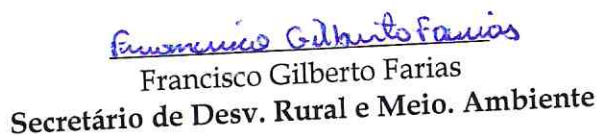 Francisco Gilberto Farias
Francisco Gilberto Farias
Secretário de Desv. Rural e Meio. Ambiente